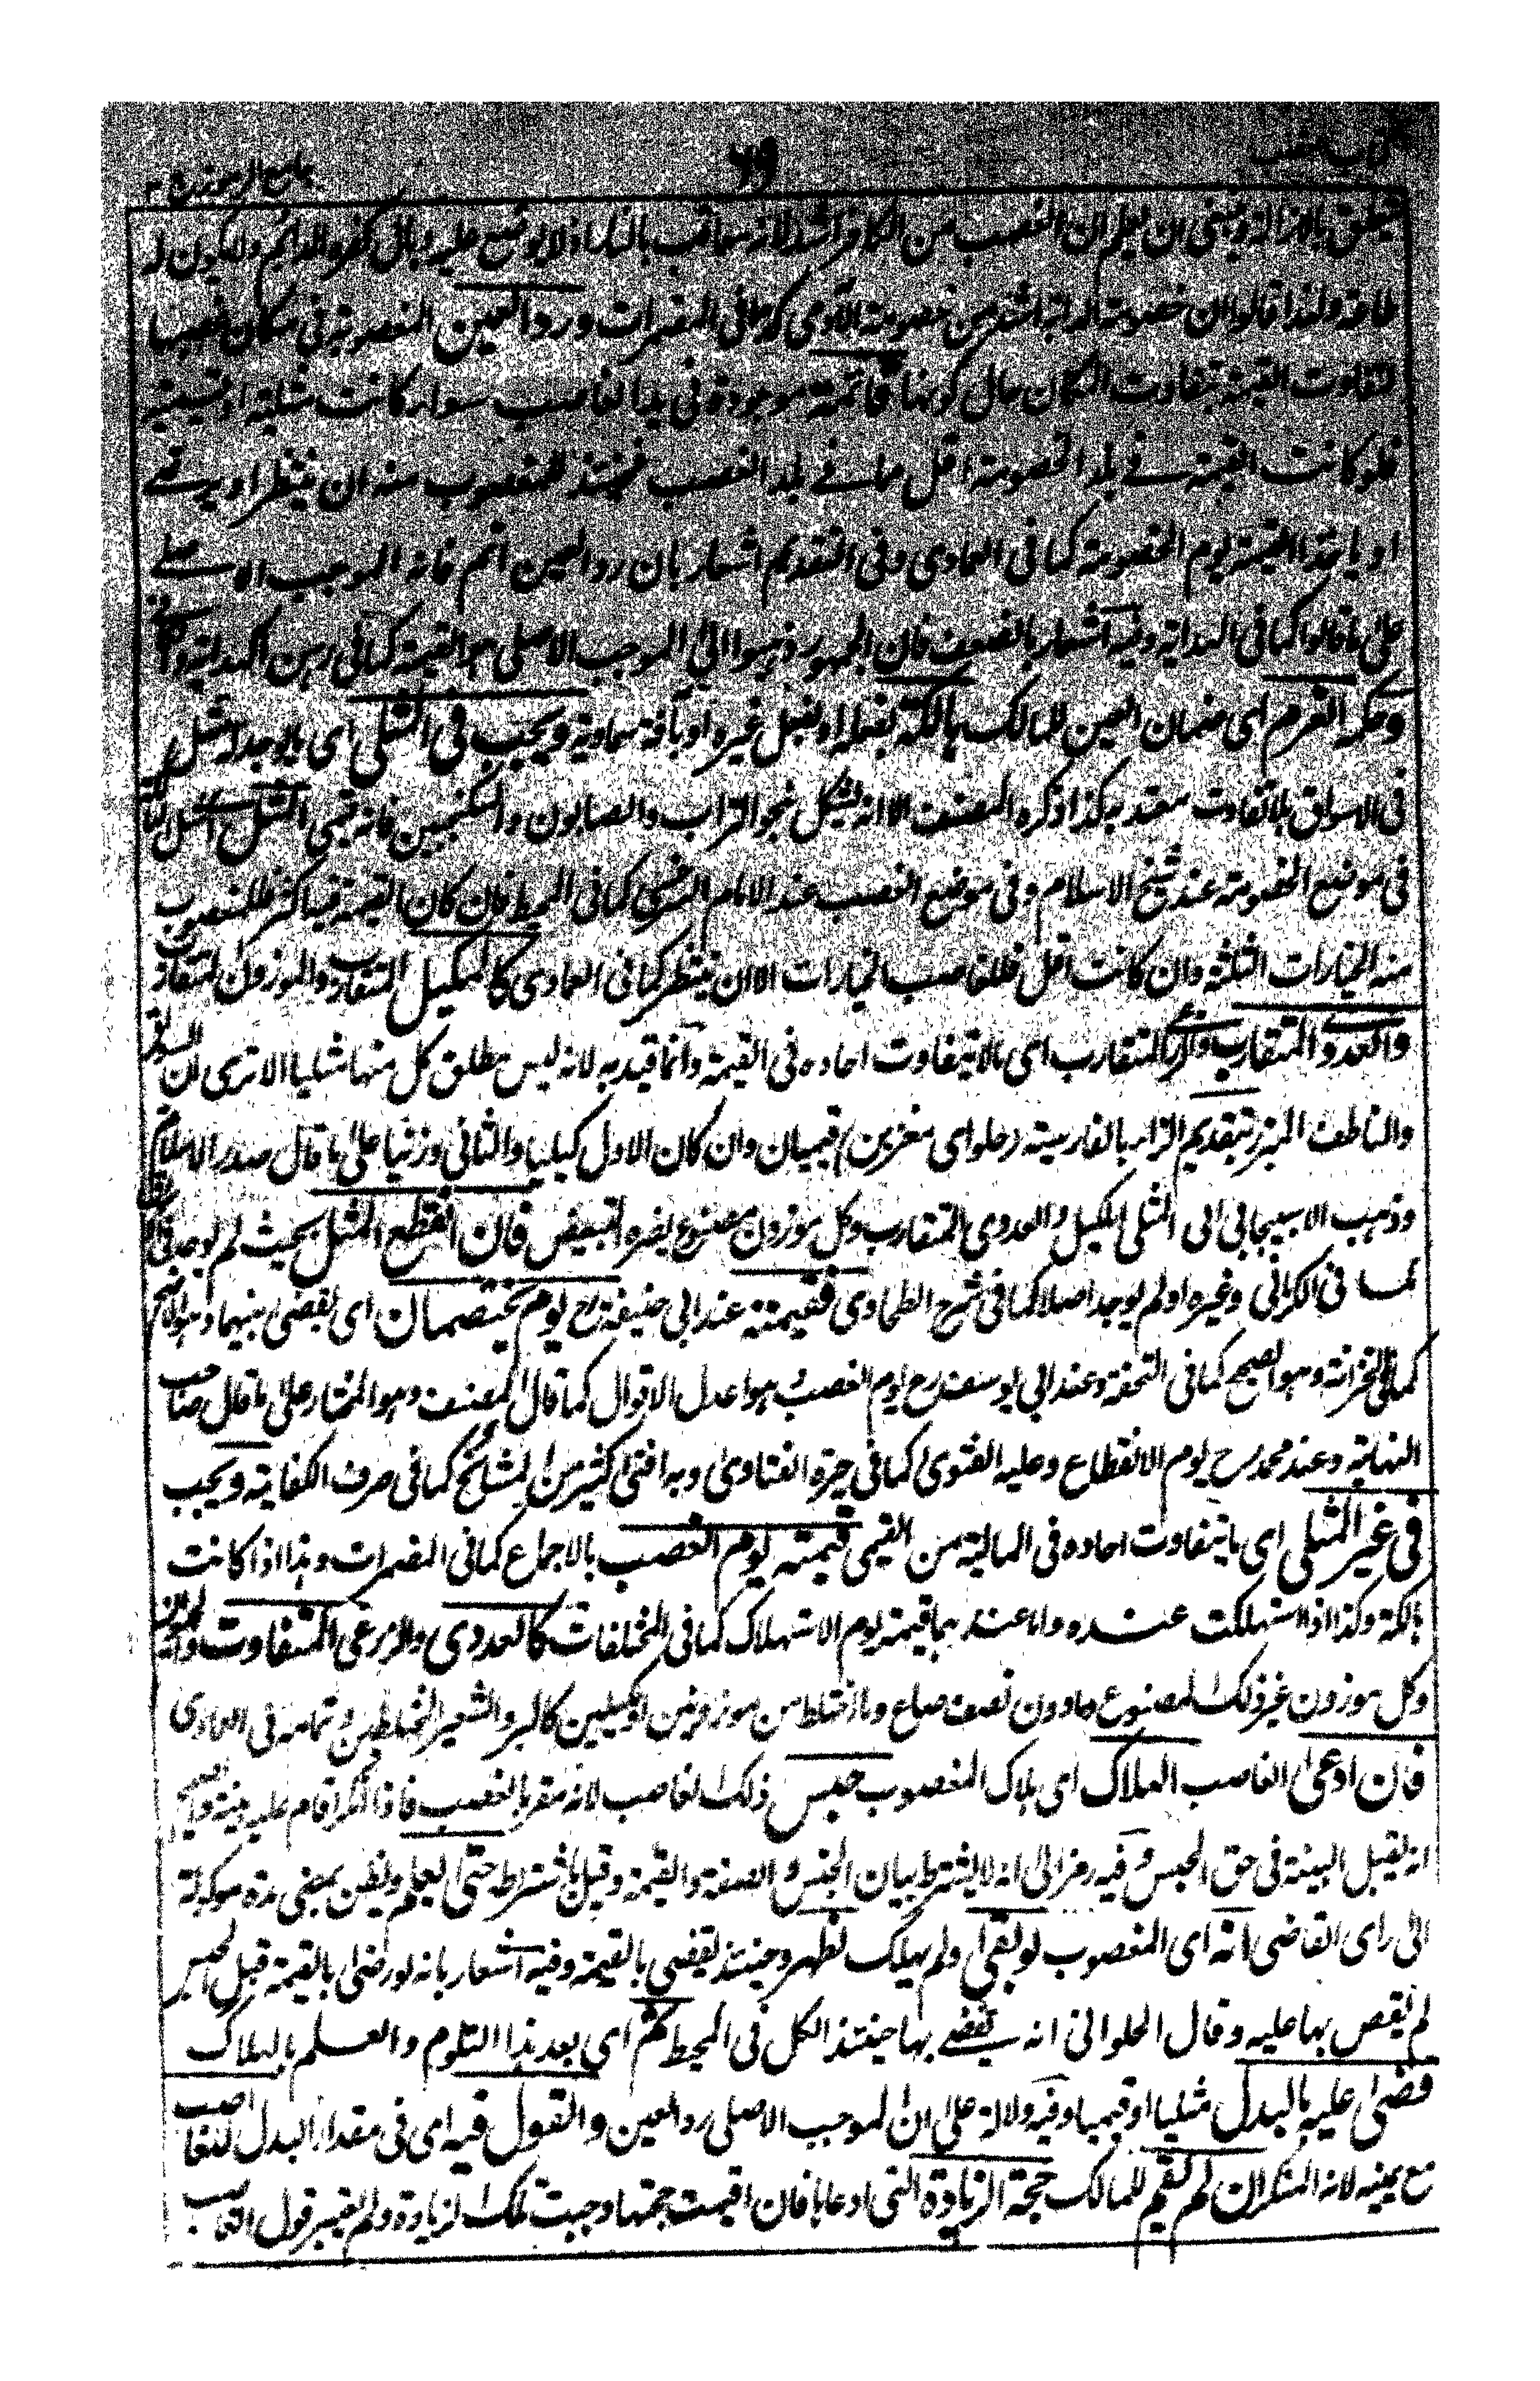 كتاب الغصب ٦٩ جامع الرموز ج ٣
يتعلق بالازالة وينبغى ان يعلم ان الغصب من الكافر اشد لانه يعاقب بالنار اذ لا يوضع عليه وبال كفره الدائم ولا يكون له
طاعة ولذا قالوا ان خصومة الدابة اشد من خصومة الآدمى كما فى المضمرات ورد العين المغصوبة فى مكان غصبها
لتفاوت القيمة بتفاوت المكان حال كونها قائمة موجودة فى يد الغاصب سواء كانت مثلية او قيمية
فلو كانت القيمة فى بلد الخصومة اقل مما فى بلد الغصب فحينئذ للمغصوب منه ان ينتظر او يرضى
او ياخذ القيمة يوم الخصومة كما فى العمادى وفى التقديم اشعار بان رد العين اتم فانه الموجب الاصلى
على ما قالوا كما فى الهداية وفيه اشعار بالضعف فان الجمهور ذهبوا الى الموجب الاصلى هو القيمة كما فى رهن الهداية
وحكمه الغرم اى ضمان العين للمالك هالكة بفعله او بفعل غيره او بآفة سماوية ويجب فى المثلى اى ما يوجد له مثل
فى الاسواق بلا تفاوت معتد به كذا ذكره المصنف الا انه يشكل بنحو التراب والصابون والسكنجبين فانه قيمى المثل
فى موضع الخصومة عند شيخ الاسلام وفى موضع الغصب عند الامام السرخسى كما فى المحيط فان كان القيمة فيه اكثر فللمغصوب
منه الخيارات الثلثة وان كانت اقل فللغاصب الخيارات الا ان ينتظر كما فى العمادى كالمكيل المتقارب والموزون المتقارب
والعددى المتقارب المتقارب اى ما لا يتفاوت احاده فى القيمة وانما قيد به لانه ليس مطلق كل منها مثليا الا ترى ان
والناطف المبزر بتقديم الزاء بالفارسية (حلواى مغزين) قيميان وان كان الاول كيليا والثانى وزنيا على ما قال صدر الاسلام
وذهب الاسبيجابى الى المثلى المكيل والعددى المتقارب وكل موزون مصنوع يضره التبعيض فان انقطع المثل بحيث لم يوجد فى
كما فى الكرمانى وغيره او لم يوجد اصلا كما فى شرح الطحاوى فقيمته عند ابى حنيفة رح يوم يختصمان اى يقضى بينهما وهو الاصح
كما فى الخزانة وهو الصحيح كما فى التحفة وعند ابى يوسف رح يوم الغصب هو اعدل الاقوال كما قال المصنف وهو المختار على ما قال صاحب
النهاية وعند محمد رح يوم الانقطاع وعليه الفتوى كما فى ذخيرة الفتاوى وبه افتى كثير من المشايخ كما فى صرف الكفاية ويجب
فى غير المثلى اى ما يتفاوت احاده فى المالية من القيمى قيمته يوم الغصب بالاجماع كما فى المضمرات وهذا اذا كانت
هالكة وكذا اذا استهلكت عنده واما عندهما فقيمته يوم الاستهلاك كما فى المختلفات كالعددى والذرعى المتفاوت
وكل موزون غير ذلك المصنوع وما دون نصف صاع وما اختلط من موزونين او كيليين كالبر والشعير المختلطين وتمامه فى العمادى
فان ادعى الغاصب الهلاك اى هلاك المغصوب حبس ذلك الغاصب لانه مقر بالغصب فاذا انكر اقام عليه بينة والصحيح
انه يقبل البينة فى حق الحبس وفيه رمز الى انه لا يشترط بيان الجنس والصفة والقيمة وقيل يشترط حتى يعلم ويظن بمضى مدة موكولة
الى راى القاضى انه اى المغصوب لو بقى ولم يهلك لظهر وحينئذ يقضى بالقيمة وفيه اشعار بانه لو رضى بالقيمة قبل الحبس
لم يقض بها عليه وقال الحلوانى انه يقضى بها حينئذ الكل فى المحيط ثم اى بعد هذا التلوم والعلم بالهلاك
قضى عليه بالبدل مثليا او قيميا وفيه دلالة على ان الموجب الاصلى رد العين والقول فيه اى فى مقدار البدل للغاصب
مع يمينه لانه المنكر ان لم تقم للمالك حجة الزيادة التى ادعاها فان اقيمت حجتها وجبت تلك الزيادة ولم يعتبر قول الغاصب